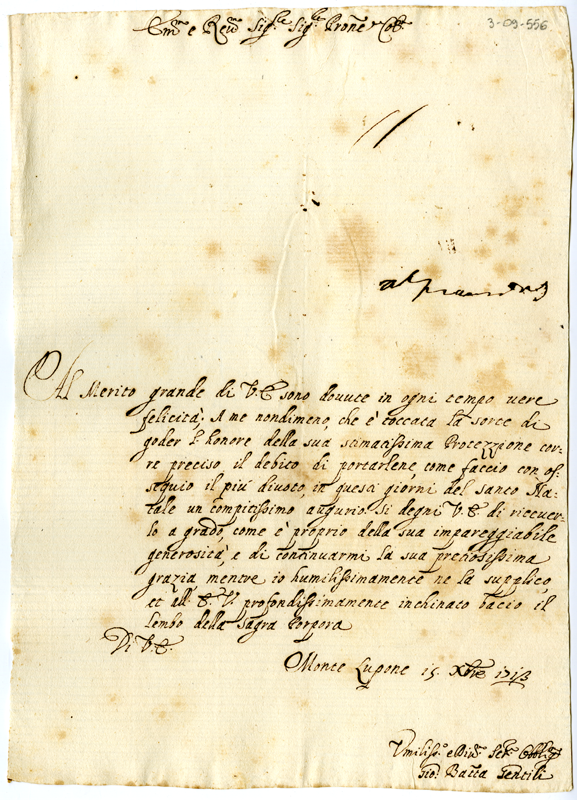 3-09-556
Em.mo e Rev.mo Sig.re Sig.re Prone Col.mo
Al Merito grande di V.E. sono dovute in ogni tempo vere
felicità; A me nondimeno, che è toccata la sorte di
goder l'honore della sua stimatissima Protezzione cor-
re preciso il debito di portarlene, come faccio con os-
sequio il più divoto, in questi giorni del santo Na-
tale un compitissimo augurio. Si degni V.E. di ricever-
lo a grado, come è proprio della sua impareggiabile
generosità, e di continuarmi la sua pretiosissima
grazia mentre io humilissimamente ne la supplico,
et all'E.V. profondissimamente inchinato bacio il
lembo della Sagra Porpora
Di V.E.
Monte Lupone 15 Xbre 1713
Umiliss.o e Div.o Ser.e Obblig.o
Gio. Batta Gentili